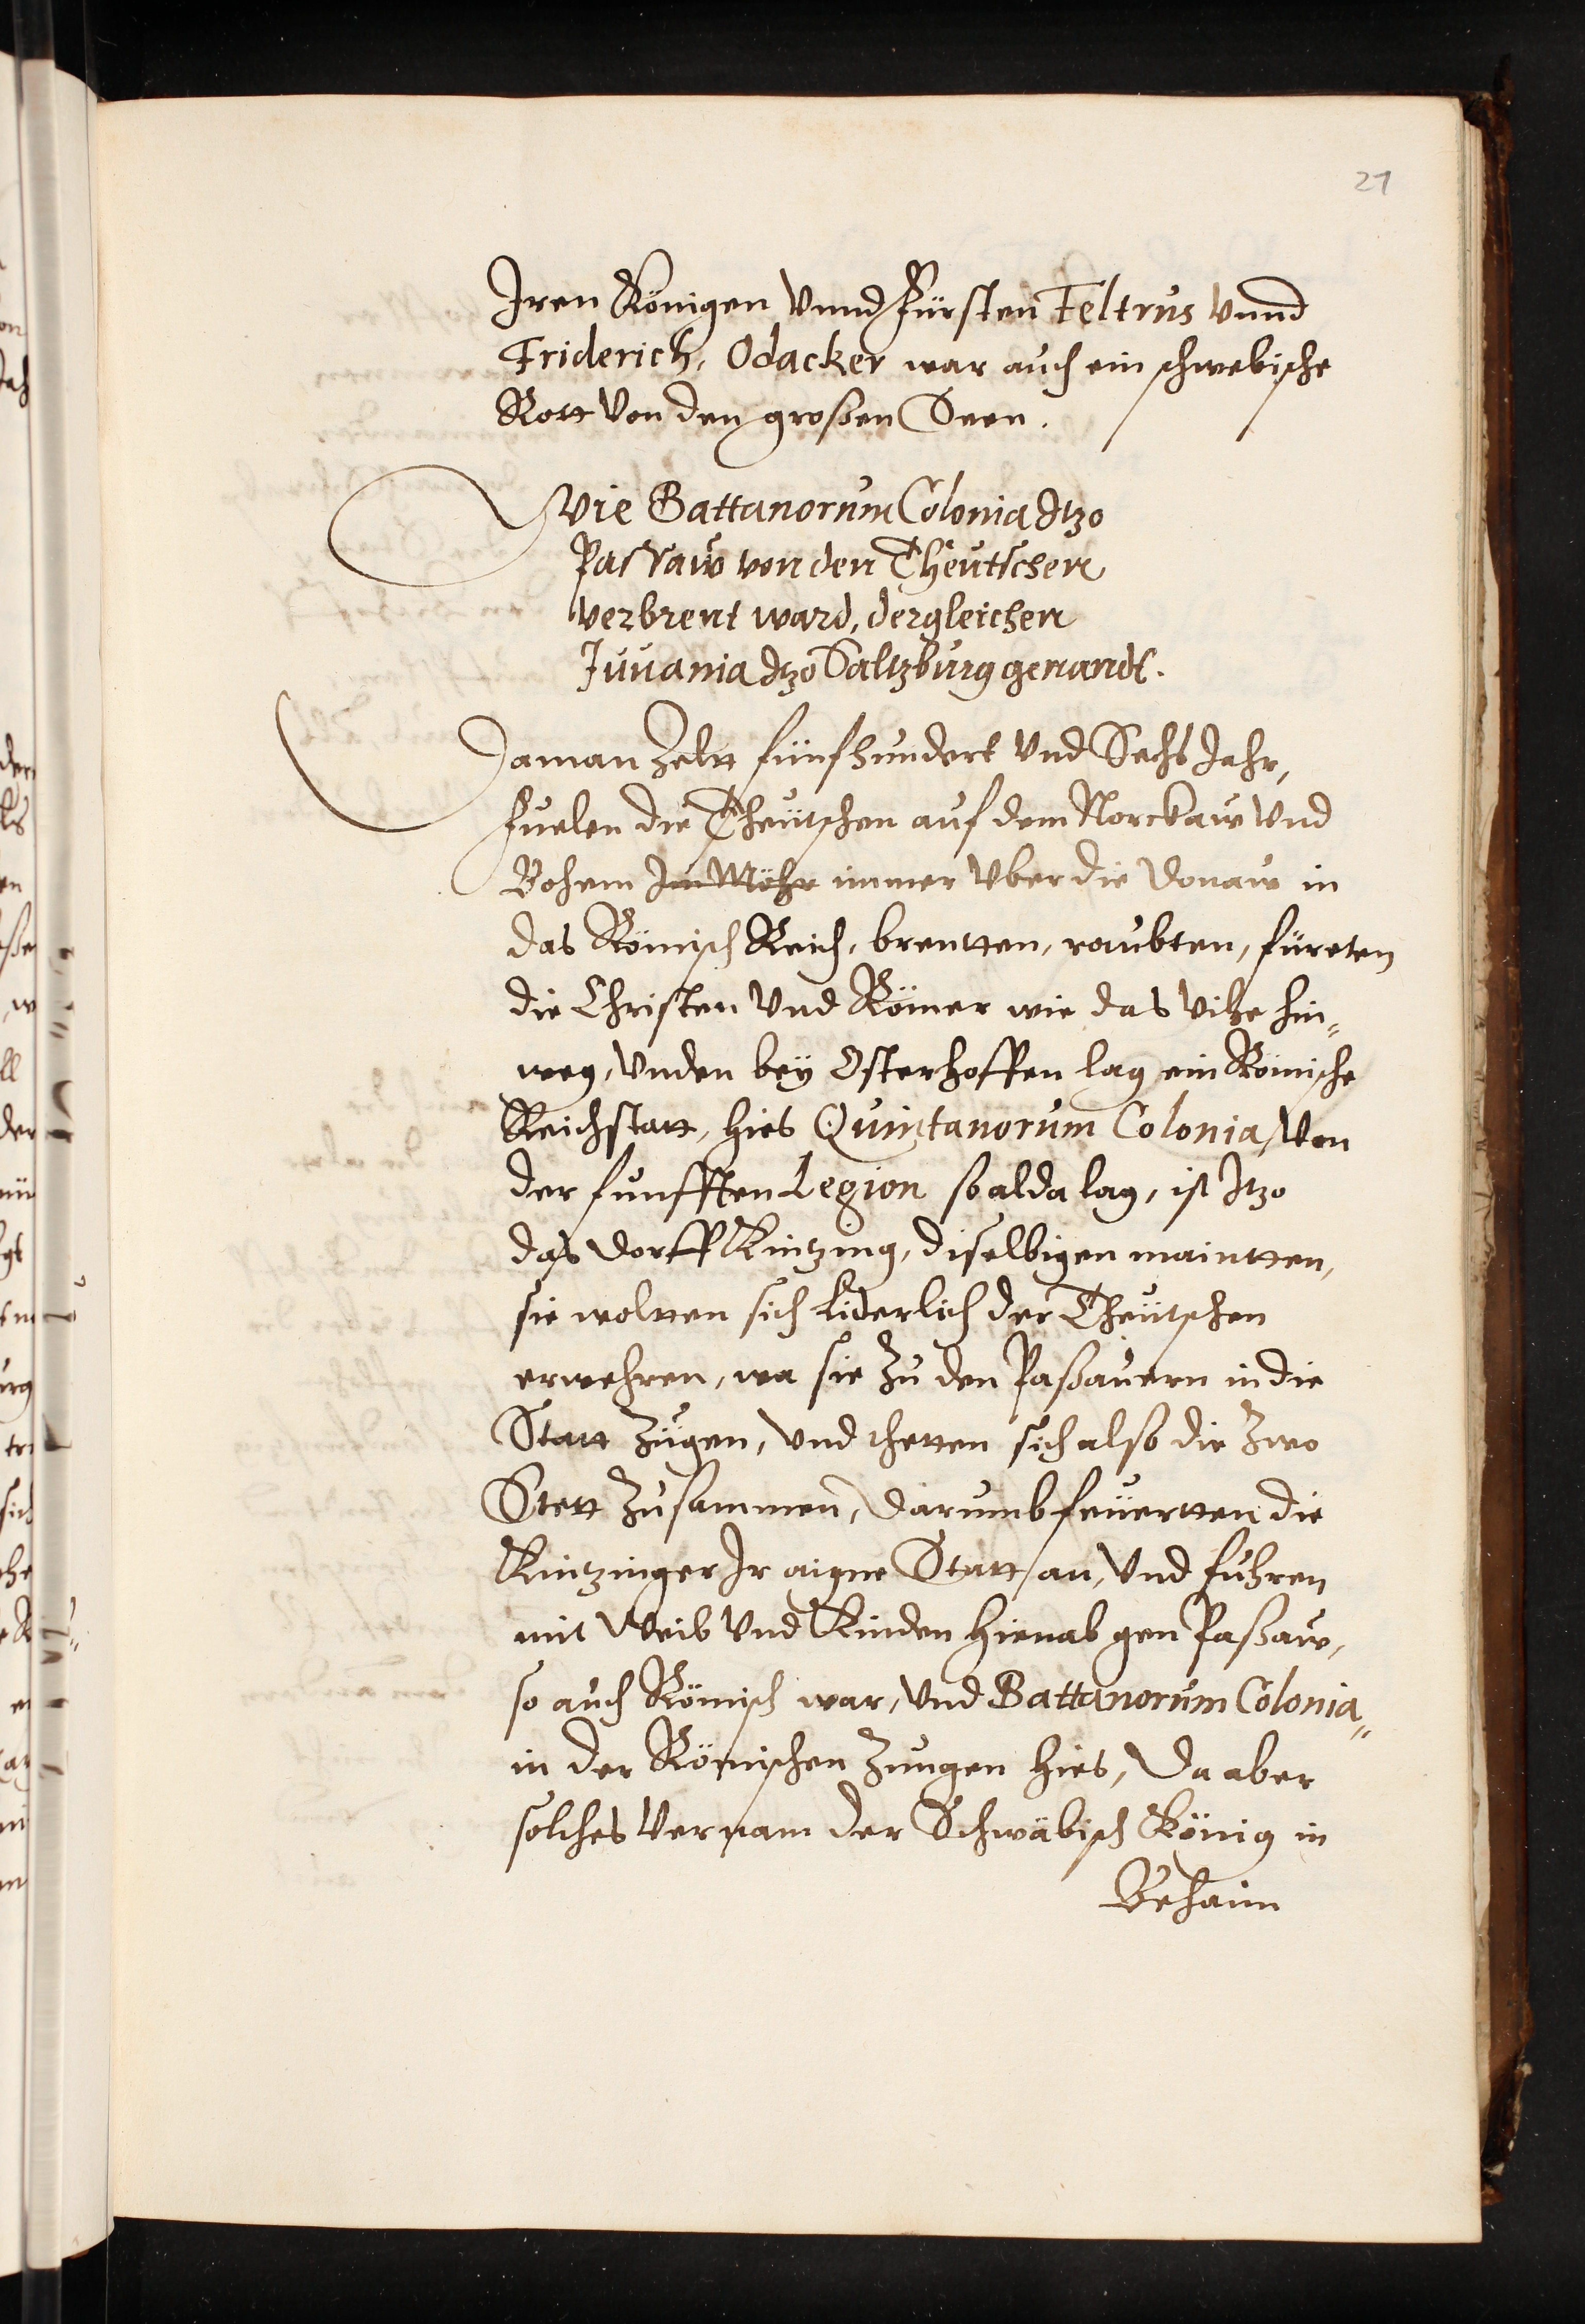 21
Iren Königen vnnd Fürsten Feltrus vnnd
Friderich, Odacker war auch ein schwebische
Rott von den großen Seen.
Wie Battanorum Colonia Itzo
Passaw von den Theutschen
verbrent ward, dergleichen
Juuania Itzo Saltzburg genandt.
Da man Zeltt fünfhundert vnd Sechs Jahr,
fuelen die Theütschen auf dem Norckaw vnd
Bohem Im Möhr immer vber die Donaw in
das Römisch Reich, brentten, raubten, füreten
die Christen vnd Römer wie das vihe hin„
weg, vnden bey Osterhoffen lag ein Römische
Reichstatt, hies Quintanorum Colonia, von
der funfften Legion so alda lag, ist Itzo
das Dorff Kintzing, diselbigen maintten,
sie woltten sich liderlich der Theütschen
erwehren, wa sie zu den Paßauern in die
Statt zügen, vnd thetten sich also die zwo
Stett zusammen, darumb feüertten die
Kintzinger Ir aigne Statt an, vnd fuhren
mit Weib vnd Kinden hienab gen Paßaw,
so auch Römisch war, vnd Battanorum Colonia„
in der Römischen Zungen hies, Da aber
solches vernam der Schwäbisch König in
Behaim